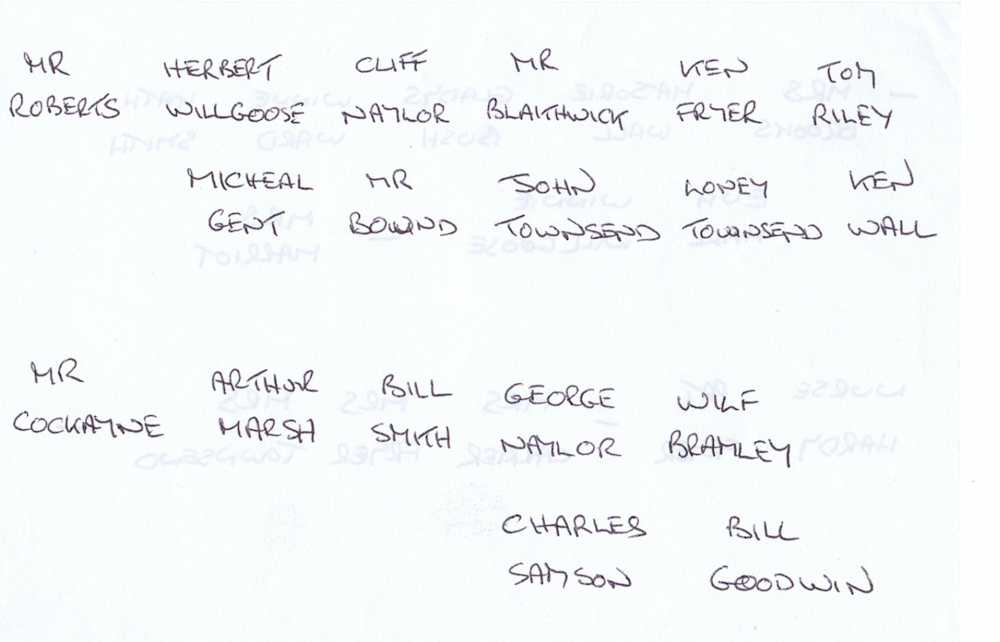 MR HERBERT CLIFF MR KEN TOM
ROBERTS WILLGOOSE NAYLOR BLAITHWICK FRYER RILEY
MICHEAL MR JOHN LONEY KEN
GENT BOWND TOWNSEND TOWNSEND WALL
MR ARTHUR BILL GEORGE WILF
COCKAYNE MARSH SMITH NAYLOR BRAMLEY
CHARLES BILL
SAMSON GOODWIN